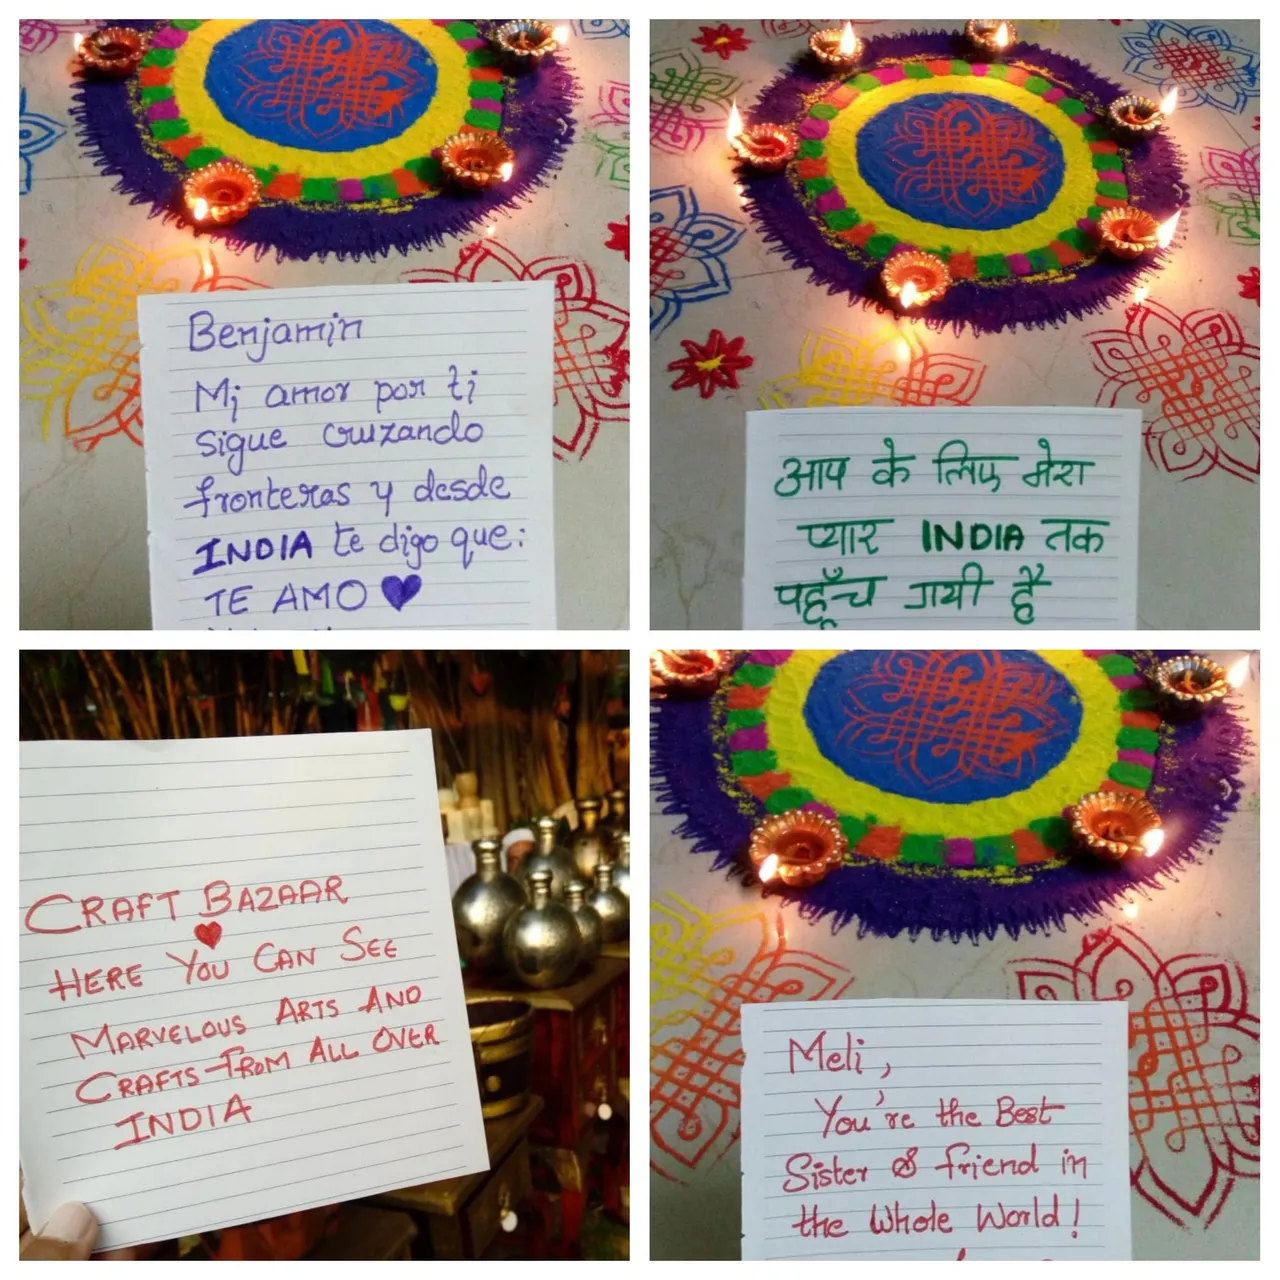 Benjamin
Mi amor por ti
sigue cruzando
fronteras y desde
INDIA te digo que:
TE AMO
आप के लिए मेरा
प्यार INDIA तक
पहूँच गयी है
CRAFT BAZAAR
HERE YOU CAN SEE
MARVELOUS ARTS AND
CRAFTS FROM ALL OVER
INDIA
Meli,
You're the Best
Sister & friend in
the Whole World!